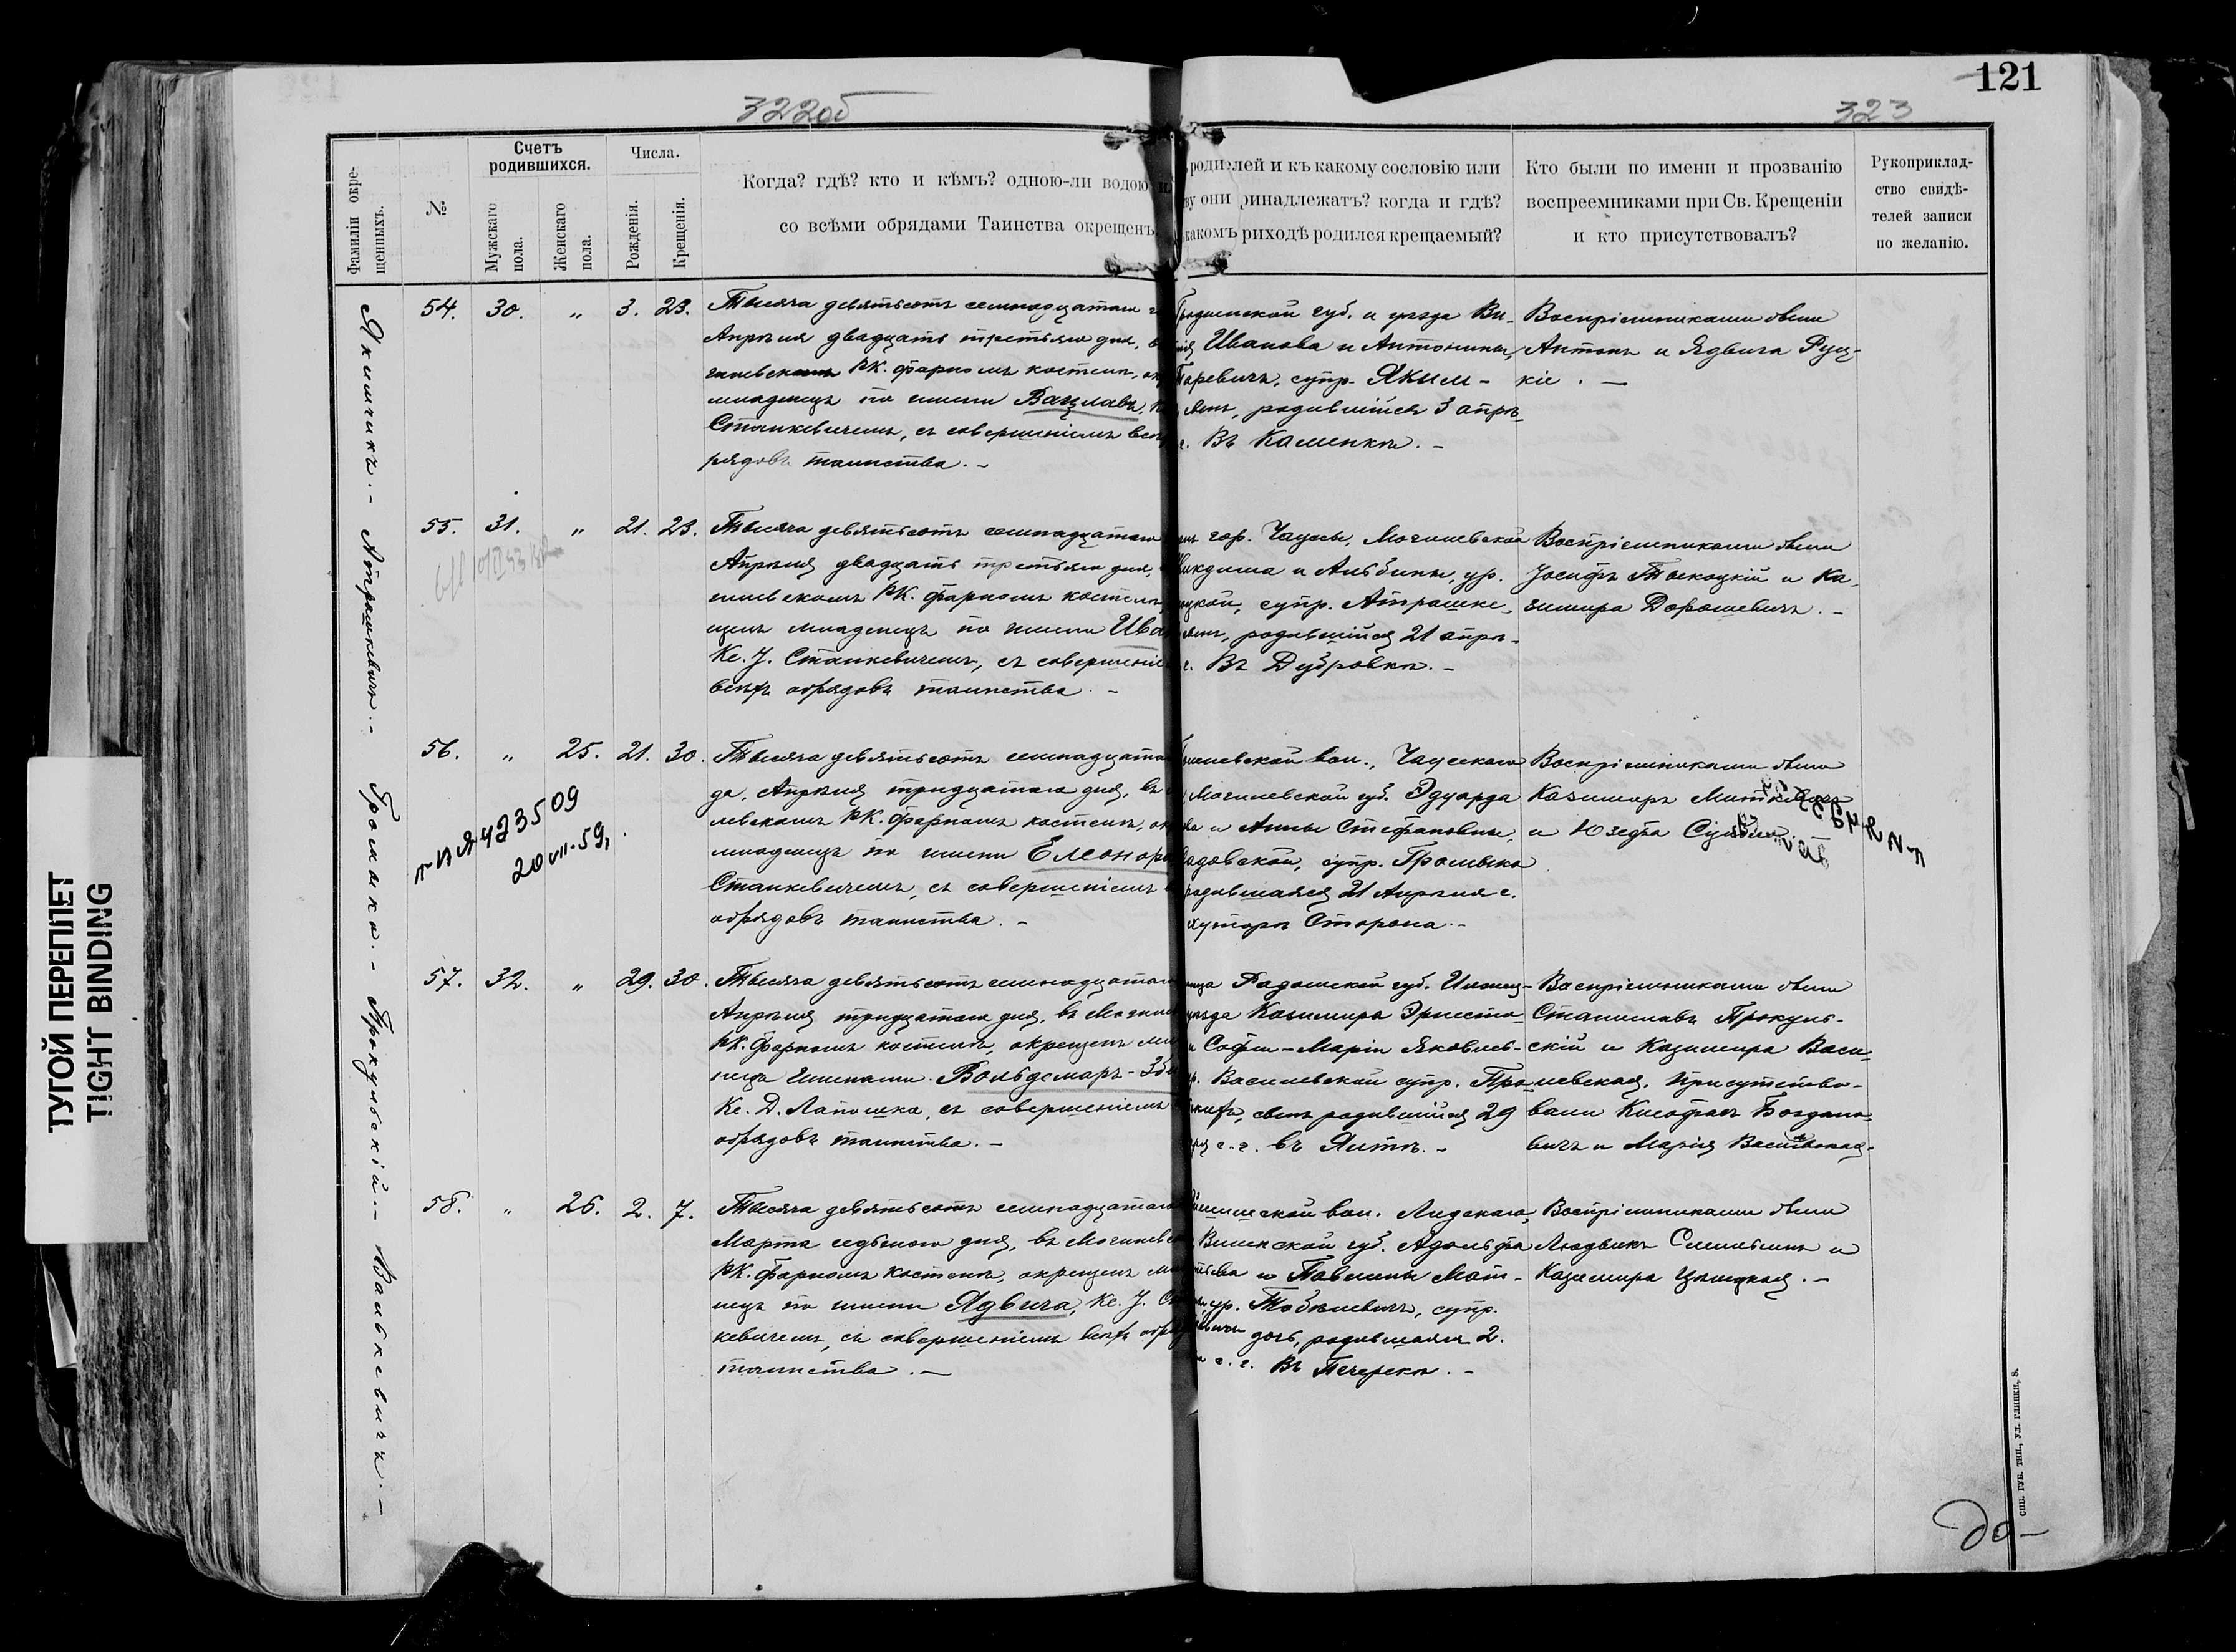 322об
121
323
Фамиліи окре-
щенныхъ.
№
Счетъ
родившихся.
Мужскаго
пола.
Женскаго
пола.
Числа.
Рожденія.
Крещенія.
Когда? гдѣ? кто и кѣмъ? одною-ли водою
со всѣми обрядами Таинства окрещенъ
родителей и къ какому сословію или
они принадлежатъ? когда и гдѣ?
какомъ приходѣ родился крещаемый?
Кто были по имени и прозванію
воспреемниками при Св. Крещеніи
и кто присутствовалъ?
Рукоприклад-
ство свидѣ-
телей записи
по желанію.
Якимчикъ.-
54. 30. " 3. 23.
Тысяча девятьсотъ семнадцатаго
Апрѣля двадцать третьяго дня,
РК. фарномъ костелѣ,
младенецъ по имени Вацлавъ,
Станкевичемъ, съ совершеніемъ
рядовъ таинства.-
Гродненской губ. и уѣзда Ви-
Иванова и Антонины,
супр. Яким-
родившійся 3 апрѣ-
Въ Каменкѣ.-
Воспріемниками были
Антонъ и Ядвига Руц-
кіе.-
Атрашкевичъ.-
55. 31. " 21. 23.
Тысяча девятьсотъ семнадцатаго
Апрѣля двадцать третьяго дня,
левскомъ РК. фарномъ костелѣ,
щенъ младенецъ по имени
Кс. J. Станкевичемъ, съ совершеніе
всѣхъ обрядовъ таинства.-
гор. Чаусы, Могилевской
и Альбины, ур.
супр. Атрашке-
родившійся 21 апрѣ-
Въ Дубровкѣ.-
Воспріемниками были
Іосифъ Высоцкій и Ка-
зимира Дорошевичъ.-
Громыко.-
56. " 25. 21. 30.
Тысяча девятьсотъ семнадцата
да, Апрѣля тридцатаго дня, въ
левскомъ РК. фарномъ костелѣ,
младенецъ по имени Елеонора
Станкевичемъ, съ совершеніемъ
обрядовъ таинства.-
вол., Чаусскаго
Могилевской губ. Эдуарда
и Анны Стефановны,
супр. Громыко
родившаяся 21 Апрѣля с.
хуторѣ Сторона.-
Воспріемниками были
Казимиръ
и Юзефа
423509
20 VII-59
Прокульскій.-
57. 32. " 29. 30.
Тысяча девятьсотъ семнадцатаго
Апрѣля тридцатаго дня, въ Могилев
РК. фарномъ костелѣ, окрещенъ мла
нецъ именами Вольдемаръ-
Кс. Д. Лапошко, съ совершеніемъ
обрядовъ таинства.-
Радомской губ. Илжец-
уѣзда Казимира Эрнесто-
Софіи-Маріи Яковлев-
Василевской супр. Про-
сынъ родившійся 29
с.г. въ Ялтѣ.-
Воспріемниками были
Станиславъ Прокуль-
скій и Казимира Васи-
левская. Присутство-
вали Ксаверій Богдано-
вичъ и Марія Василевская.
Валькевичъ.-
58. " 26. 2. 7.
Тысяча девятьсотъ семнадцатаго
Марта седьмого дня, въ Могилевск
РК. фарномъ костелѣ, окрещенъ мла
нецъ по имени Ядвига, Кс. J. Ст
кевичемъ, съ совершеніемъ всѣхъ обря
таинства.-
вол. Лидскаго,
Виленской губ. Адольфа
и Павлины Мат-
ур. супр.
дочь, родившаяся 2.
с.г. Въ Печерскѣ.-
Воспріемниками были
Людвикъ и
Казимира
до-
ТУГОЙ ПЕРЕПЛЕТ
TIGHT BINDING
СПБ. ГУБ. ТИП., УЛ. ГЛИНКИ, 8.